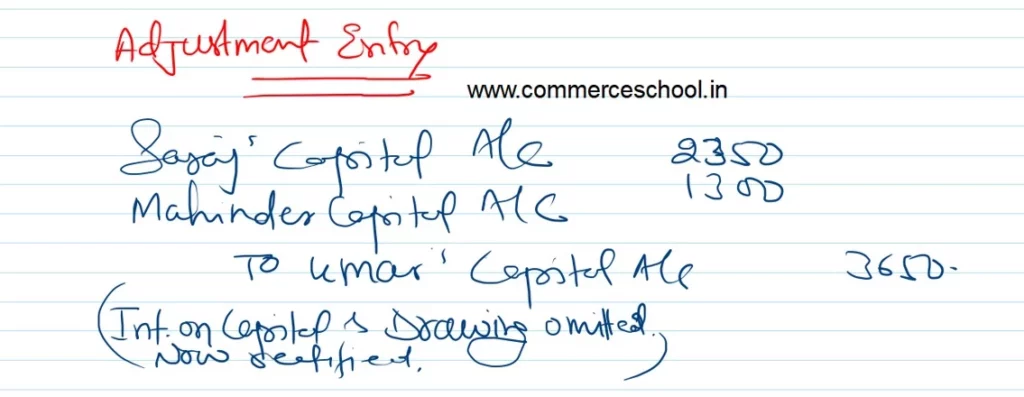 Adjustment Entry
www.commerceschool.in
Saraj' Capital A/c 2350
Mahinder Capital A/C 1300
To Umar' Capital A/c 3650.
(Int. on Capital & Drawing omitted.
Now rectified.)